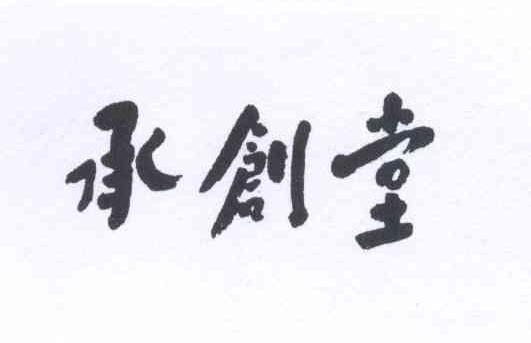 承創堂